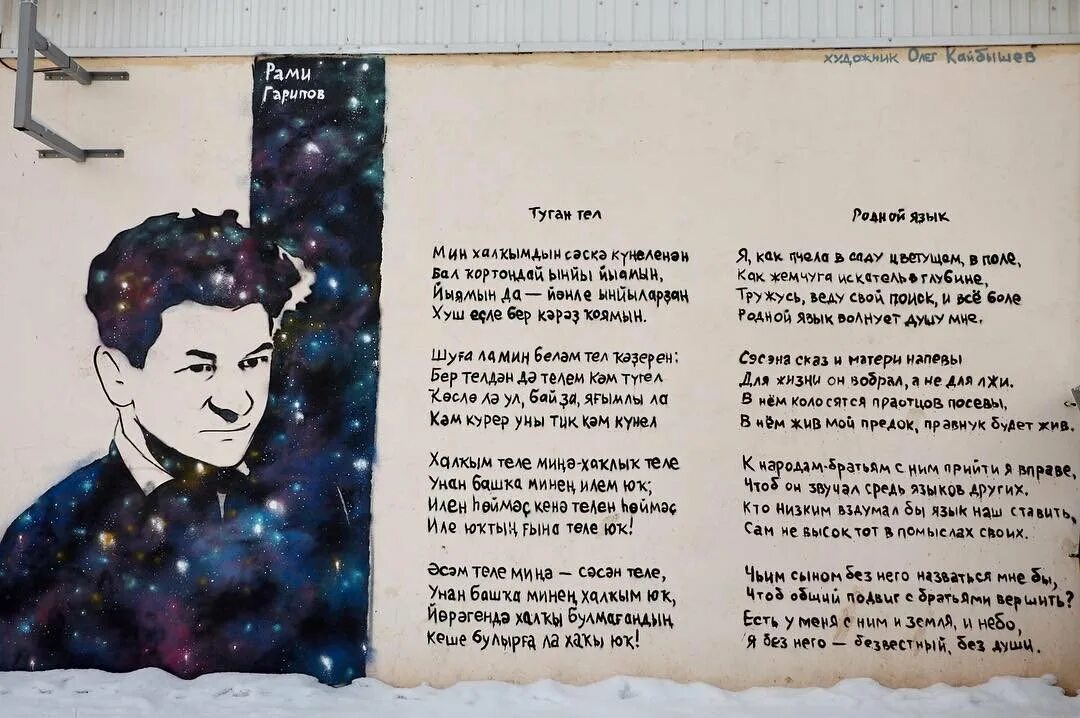 Рами
Гарипов
художник Олег Кайбышев
Туган тел
Мин халҡымдың сәскә күңеленән
Бал ҡортондай ынйы йыямын,
Йыямын да — йәнле ынйыларҙан
Хуш еҫле бер кәрәҙ ҡоямын.
Шуға ла мин беләм тел ҡәҙерен:
Бер телдән дә телем кәм түгел
Көслө лә ул, бай ҙа, яғымлы ла
Кәм күрер уны тик кәм күңел
Халҡым теле миңә-хаҡлыҡ теле
Унан башҡа минең илем юҡ;
Илен һөймәҫ кенә телен һөймәҫ
Иле юҡтың ғына теле юҡ!
Әсәм теле миңә — сәсән теле,
Унан башҡа минең халҡым юҡ,
Йөрәгендә халҡы булмағандың
Кеше булырға ла хаҡы юҡ!
Родной язык
Я, как пчела в саду цветущем, в поле,
Как жемчуга искатель в глубине,
Тружусь, веду свой поиск, и всё боле
Родной язык волнует душу мне.
Сэсэна сказ и матери напевы
Для жизни он вобрал, а не для лжи.
В нём колосятся праотцов посевы,
В нём жив мой предок, правнук будет жив.
К народам-братьям с ним прийти я вправе,
Чтоб он звучал средь языков других.
Кто низким вздумал бы язык наш ставить,
Сам не высок тот в помыслах своих.
Чьим сыном без него назваться мне бы,
Чтоб общий подвиг с братьями вершить?
Есть у меня с ним и земля, и небо,
Я без него — безвестный, без души.